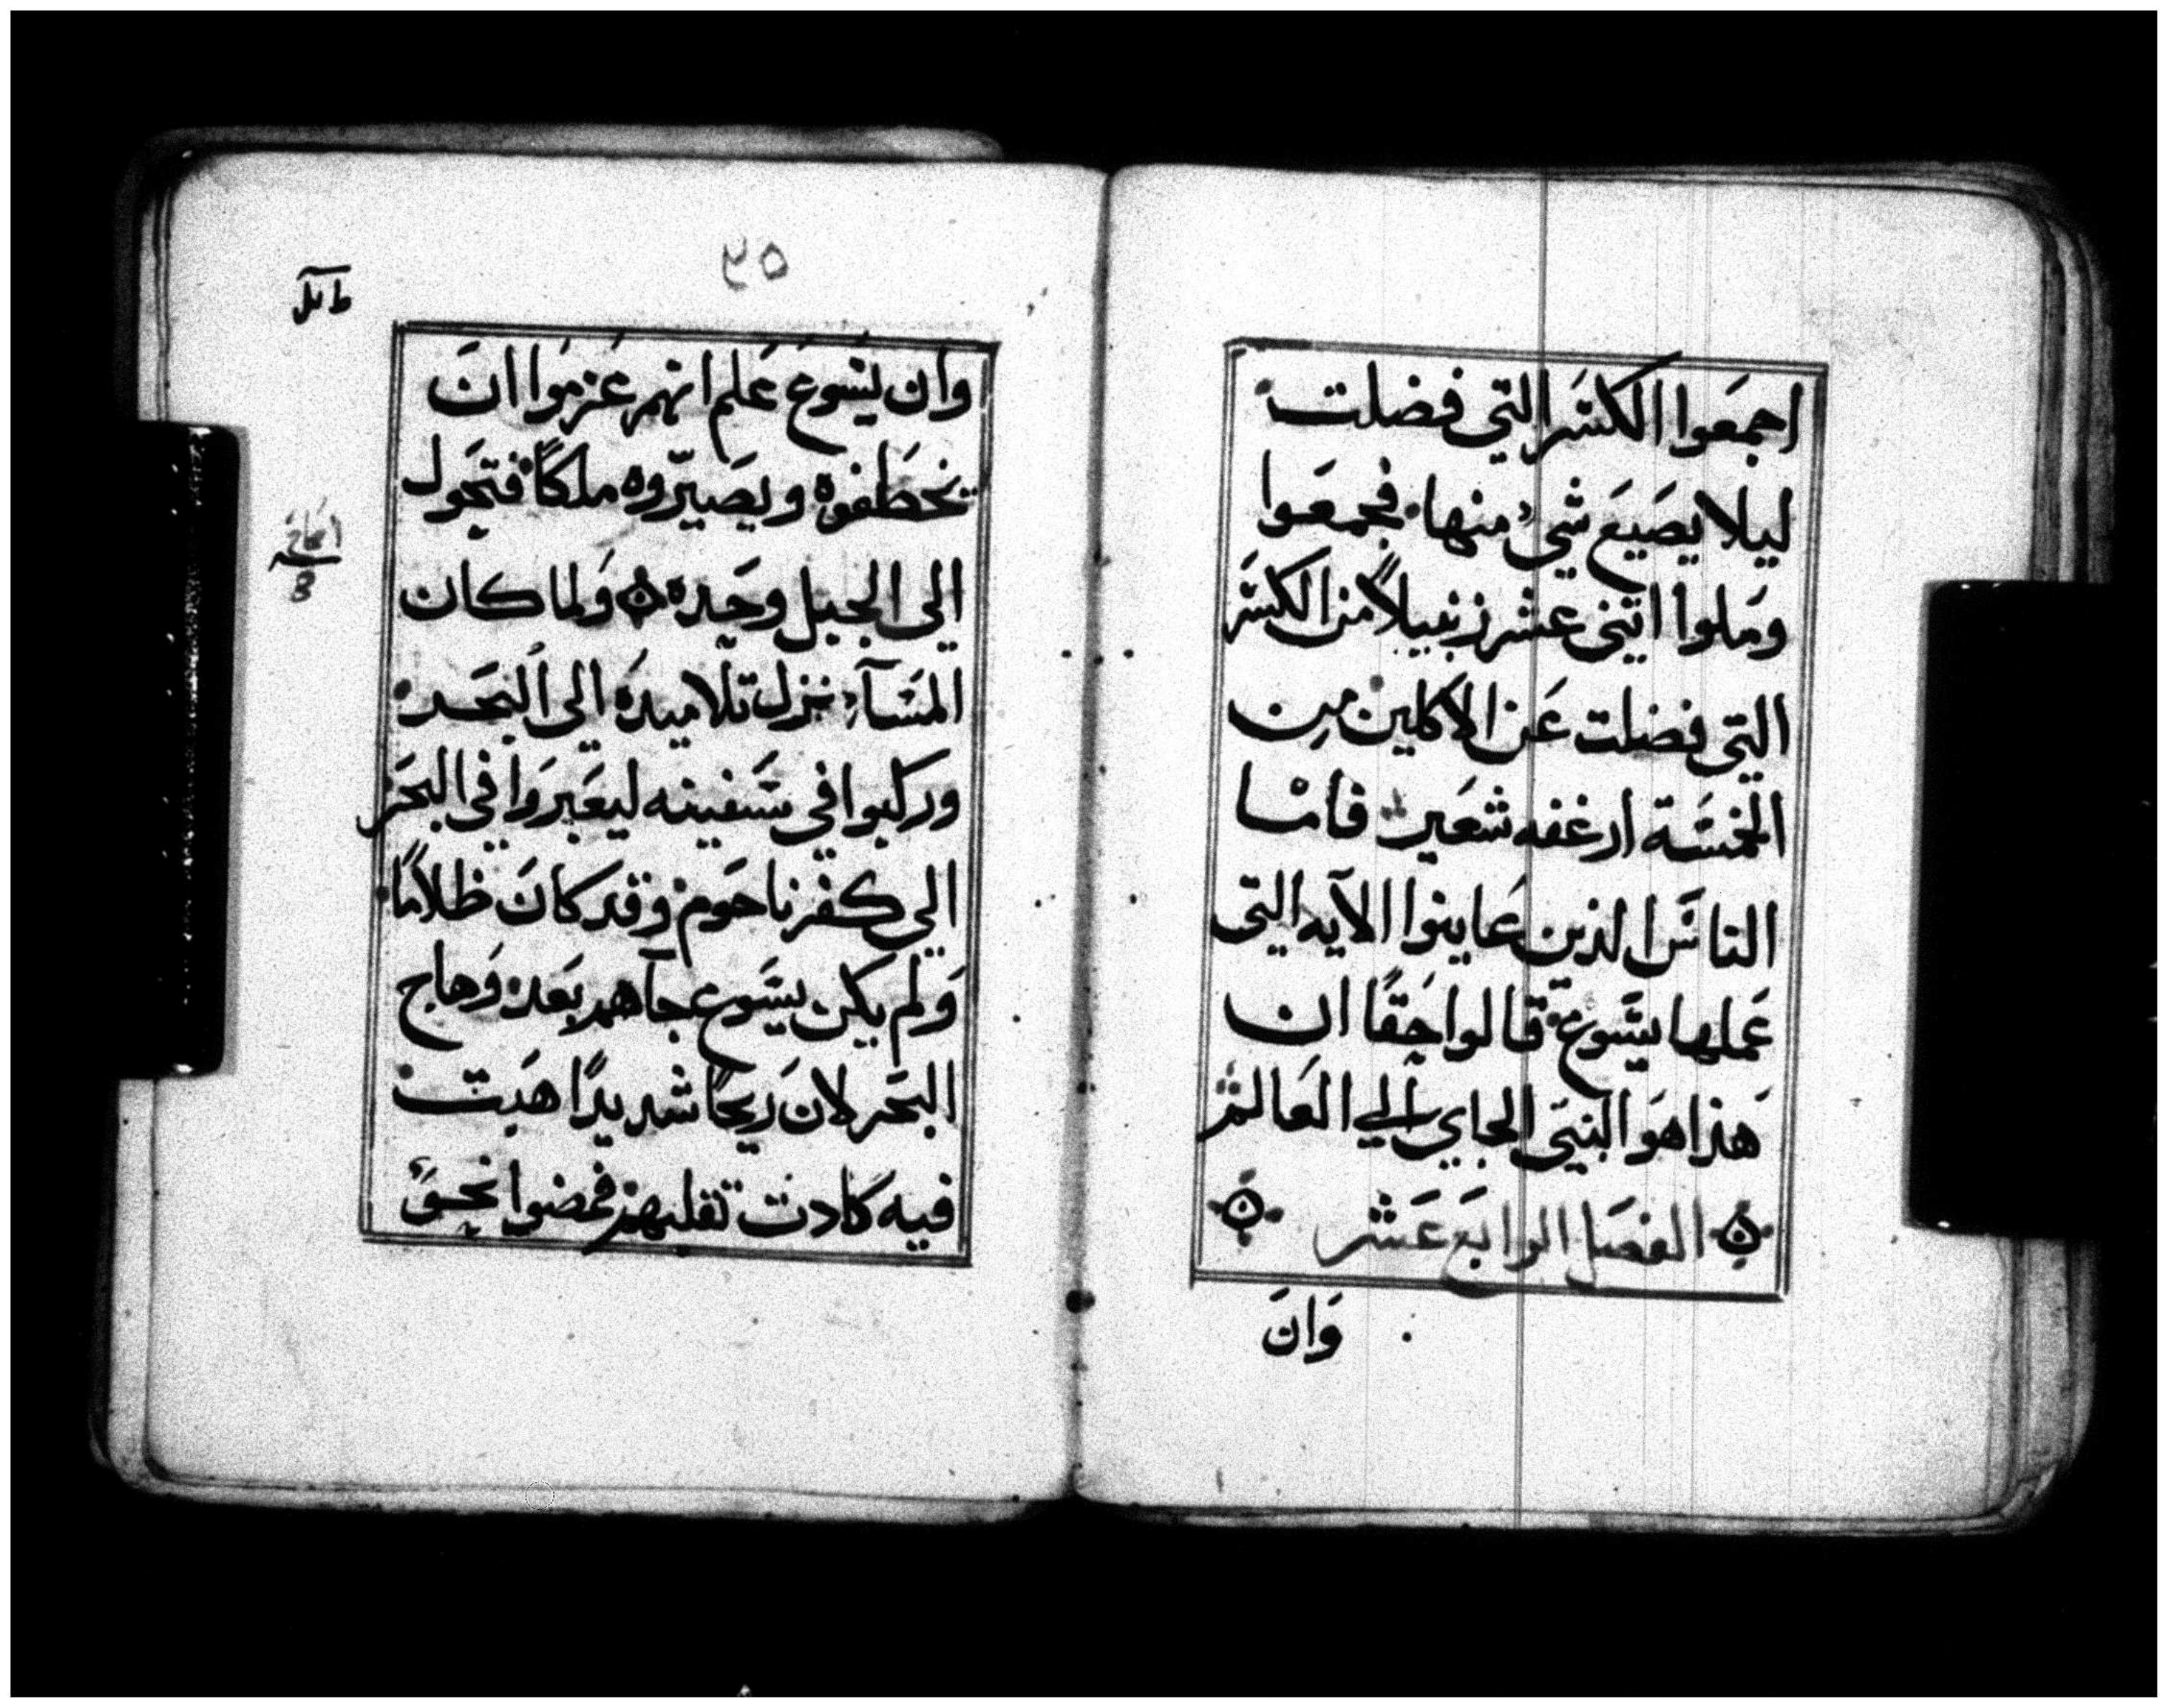 اجمَعوا الكسَر التي فضلت
ليلا يصَيع شيءٌ منها فجمعَوا
ومَلوا اثنى عشر زنبيلاً من الكسَر
التي فضلت عَن الاكلين مِن
الخمسَة ارغفه شعَير فامْا
الناسَ الذين عَاينوا الآيه التي
عَملها يسَوع قالوا حَقًا ان
هَذا هوَ النبيَ الجاي الي العَالم
الفصَل الرابَع عَشر
وَانَ
٢٥
وان يسَوعَ عَلم انهم عَزموَا انَ
يخطَفوه ويصَيّروه ملكاً فتحَول
الي الجبل وحَيده وَلما كان
المسَآء نزل تلاميدهَ الى البحَر
وركبوا في سَفينه ليعَبروَا في البحَر
الي كفرناحَوم وقد كانَ ظلامًا
وَلم يكن يسَوع جآهم بَعد وَهاج
البحَر لانَ ريحًا شديدًا هَبتَ
فيه كادت تقلبهم فمضوا نحوَ